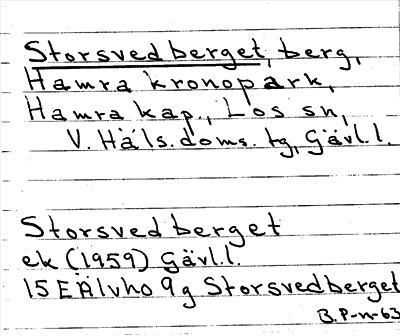 Storsvedberget, berg,
Hamra kronopark,
Hamra kap., Los sn,
V. Häls. doms. tg, Gävl. l.
Storsvedberget
ek (1959) Gävl. l.
15E Älvho 9g Storsvedberget
B. P-n-63